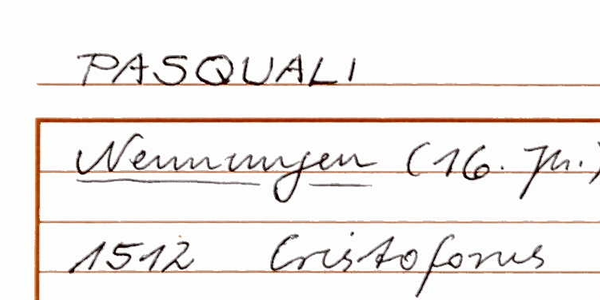 PASQUALI
Nennungen (16. Jh.)
1512 Cristoforus